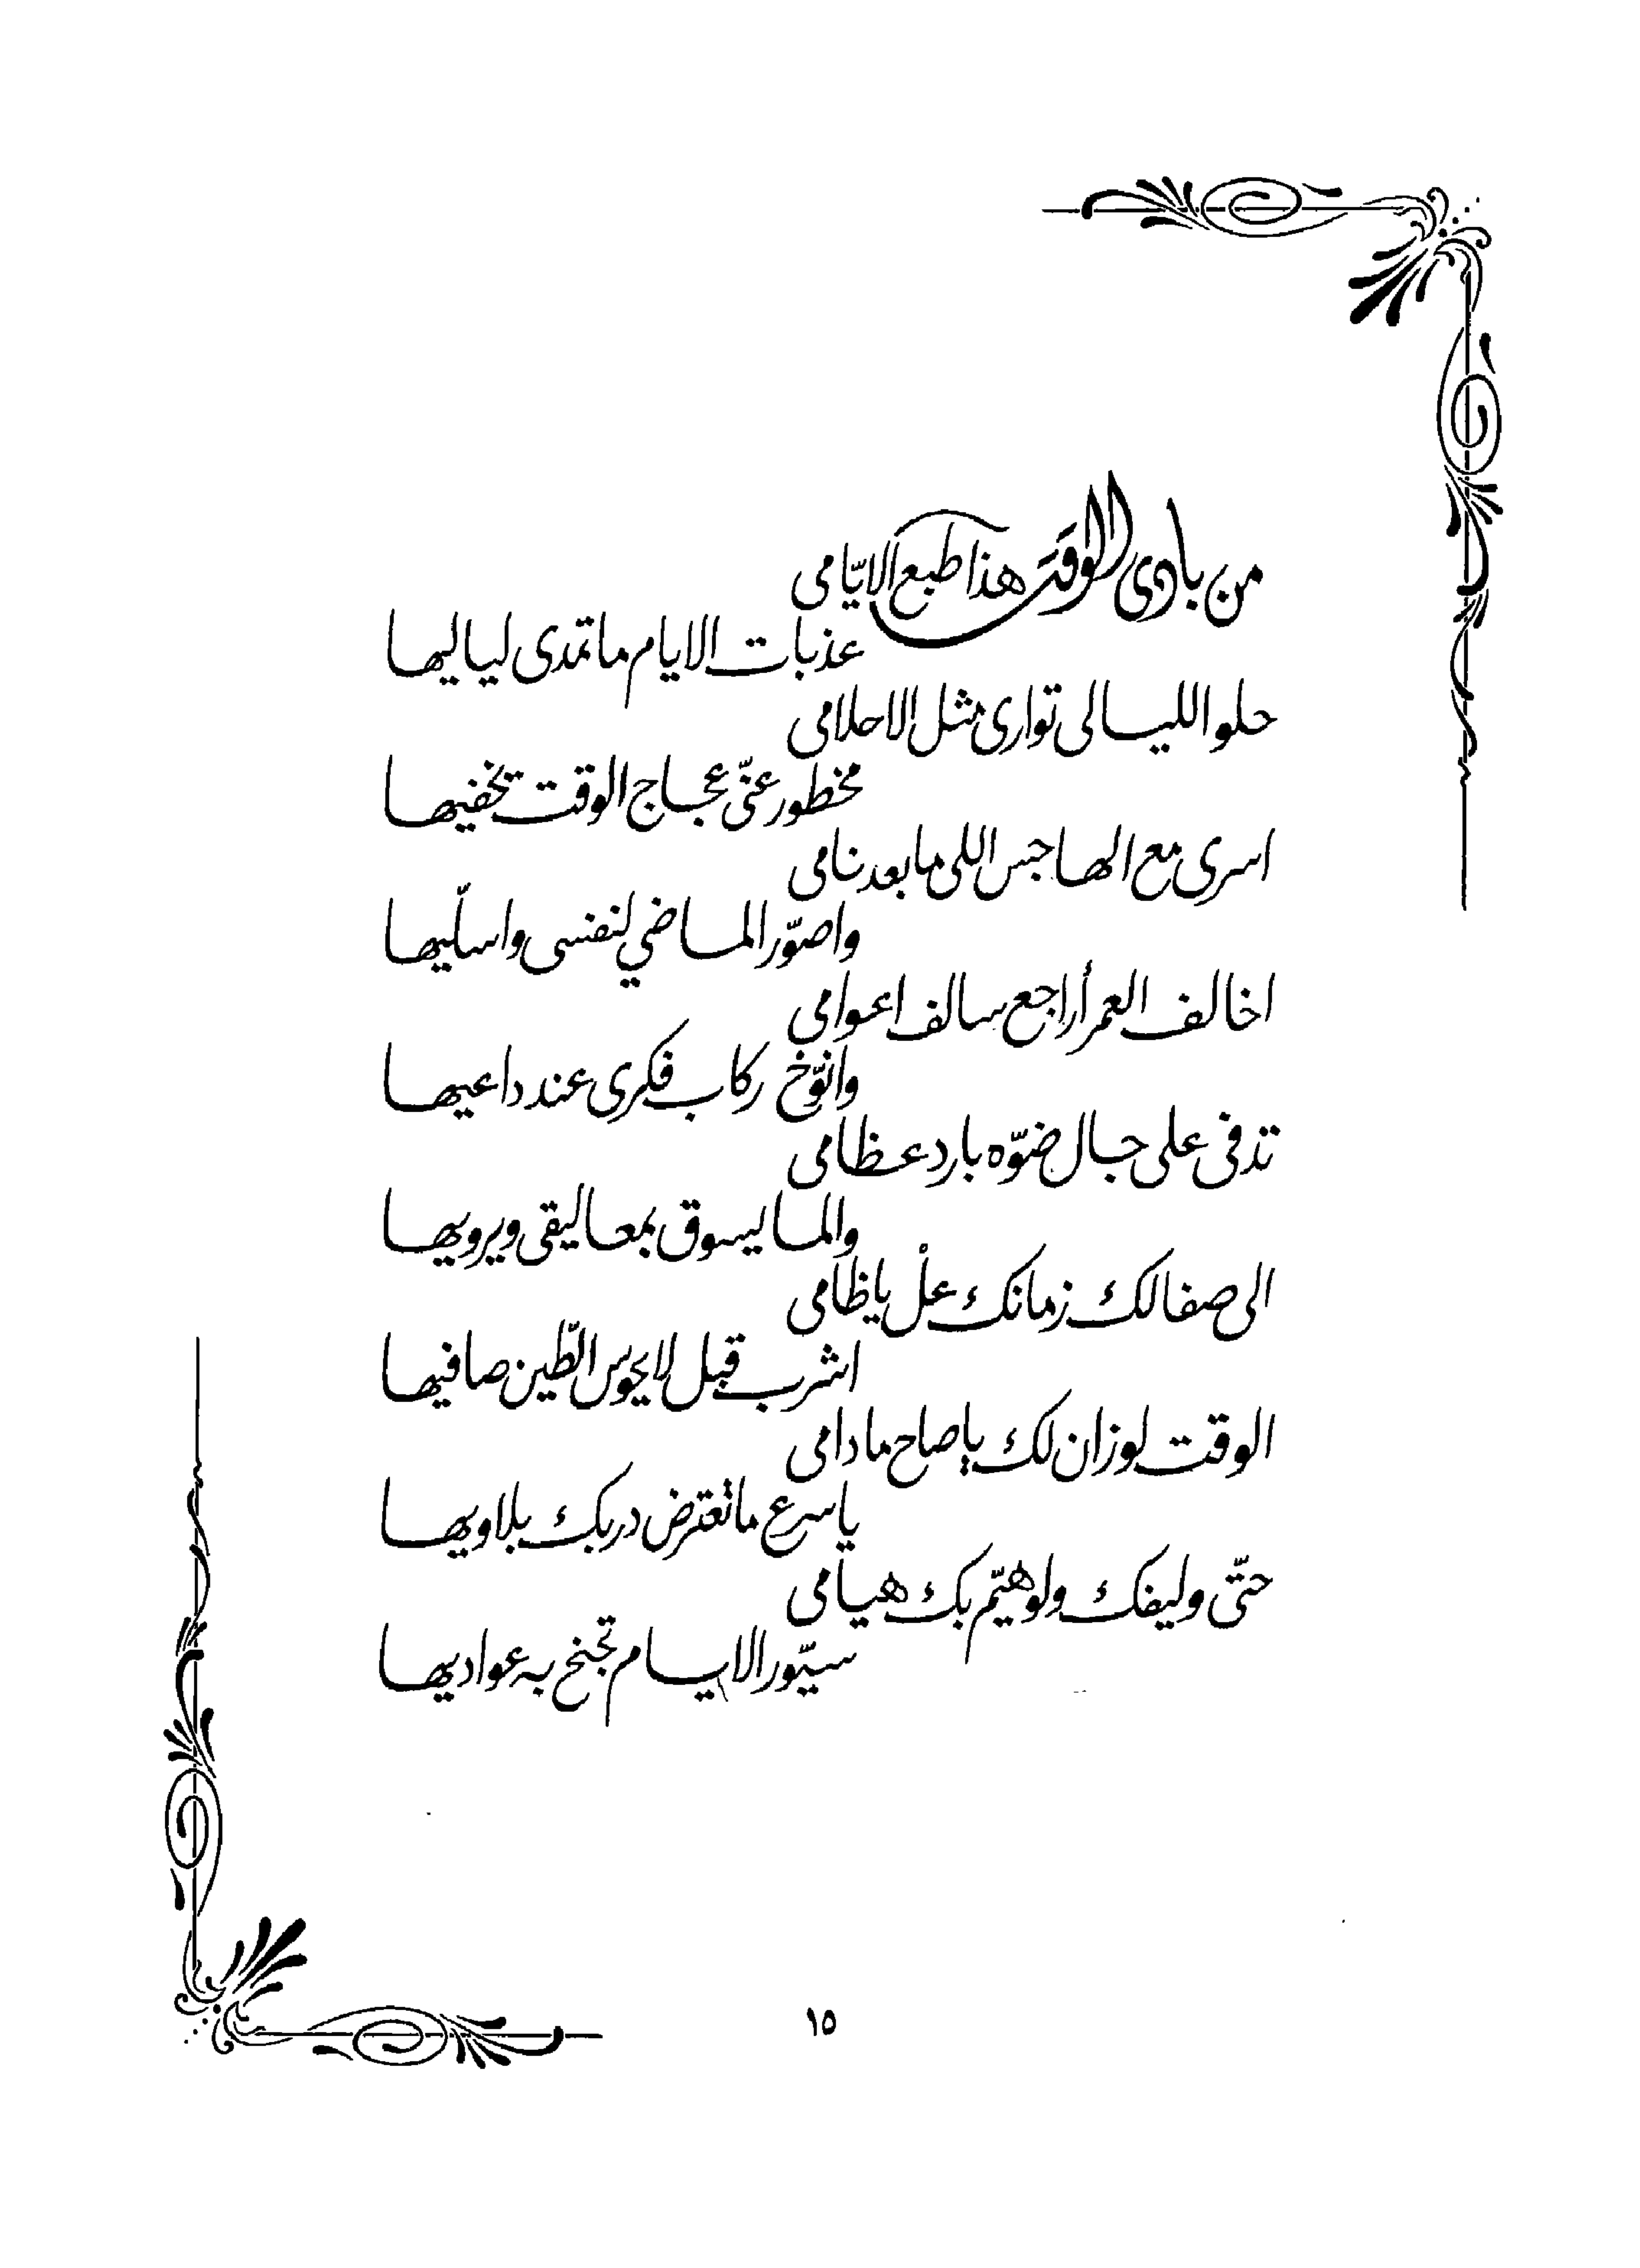 من بادى الوقت هذا طبع الايّامى
عذبات الايام ماتمدى لياليها
حلو الليالى توارى مثل الاحلامى
مخطور عنّى عجاج الوقت تخفيها
اسرى مع الهاجس اللى مابعد نامى
واصوّر الماضي لنفسى واسلّيها
اخالف العمر أراجع سالف اعوامى
وانوّخ ركاب فكرى عند داعيها
تدفى على جال ضوّه بارد عظامى
والما يسوق بمعاليقى ويرويها
الى صفالك زمانك علْ ياظامى
اشرب قبل لا يحوس الطّين صافيها
الوقت لوزان لك ياصاح مادامى
ياسرع ماتعترض دربك بلاويها
حتّى وليفك ولوهيّم بك هيامى
سيّور الايام تجنح به عواديها
١٥